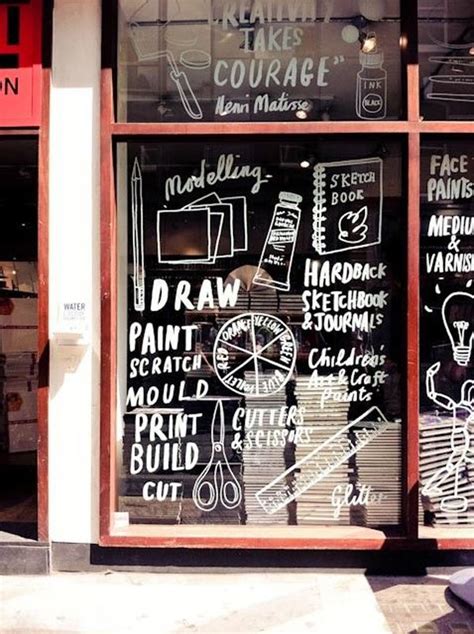 CREATIVITY
TAKES
COURAGE"
Henri Matisse
INK
BLACK
ON
Modelling
SKETCH
BOOK
FACE
PAINTS
MEDIUM
&
VARNISH
DRAW
PAINT
SCRATCH
MOULD
PRINT
BUILD
CUT
RED ORANGE YELLOW GREEN BLUE VIOLET
HARDBACK
SKETCHBOOK
& JOURNALS
Children's
Art & Craft
Paints
CUTTERS
& SCISSORS
Glitter
WATER